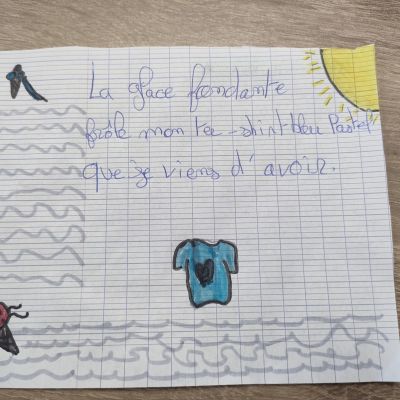 La glace fondante
frôle mon tee-shirt bleu Pastel
que je viens d'avoir.